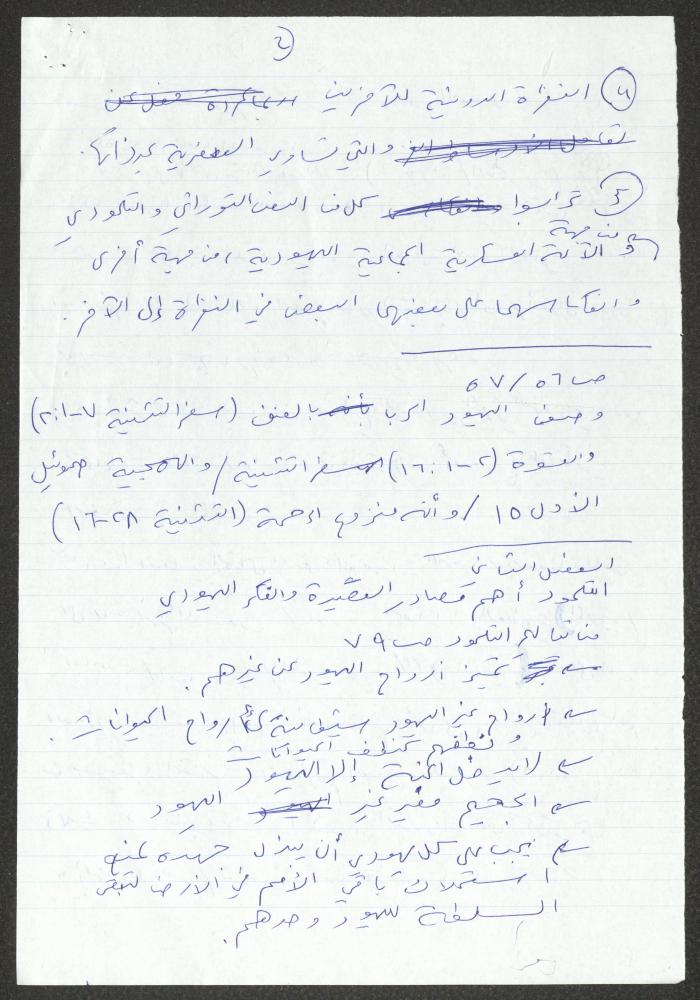 (2)
(4) النظرة الدونية للآخرين
والتي تساوي العنصرية بحذافيرها.
(5) تراسوا كل من النص التوراتي والتلمودي
من جهة
والآلة العسكرية الجماعية اليهودية، من جهة أخرى
وانعكاسهما على بعضهما البعض في النظرة إلى الآخر.
ص 56/57
وصف اليهود الرب بالعنف (سفر التثنية 7-2:1)
والقسوة (2-16:1) سفر التثنية / والهمجية صموئيل
الأول 15 / وأنه منزوع الرحمة (التثنية 28-16)
الفصل الثاني
التلمود أهم مصادر العقيدة والفكر اليهودي
من تعاليم التلمود ص 79
← تتميز أرواح اليهود عن غيرهم.
← أرواح غير اليهود شيطانية كأرواح الحيوانات.
ونطفهم كنطف الحيوانات
← لا يدخل الجنة إلا اليهود
← الجحيم مصير غير اليهود
← يجب على كل يهودي أن يبذل جهده لمنع
استملاك باقي الأمم في الأرض لتبقى
السلطة لليهود وحدهم.